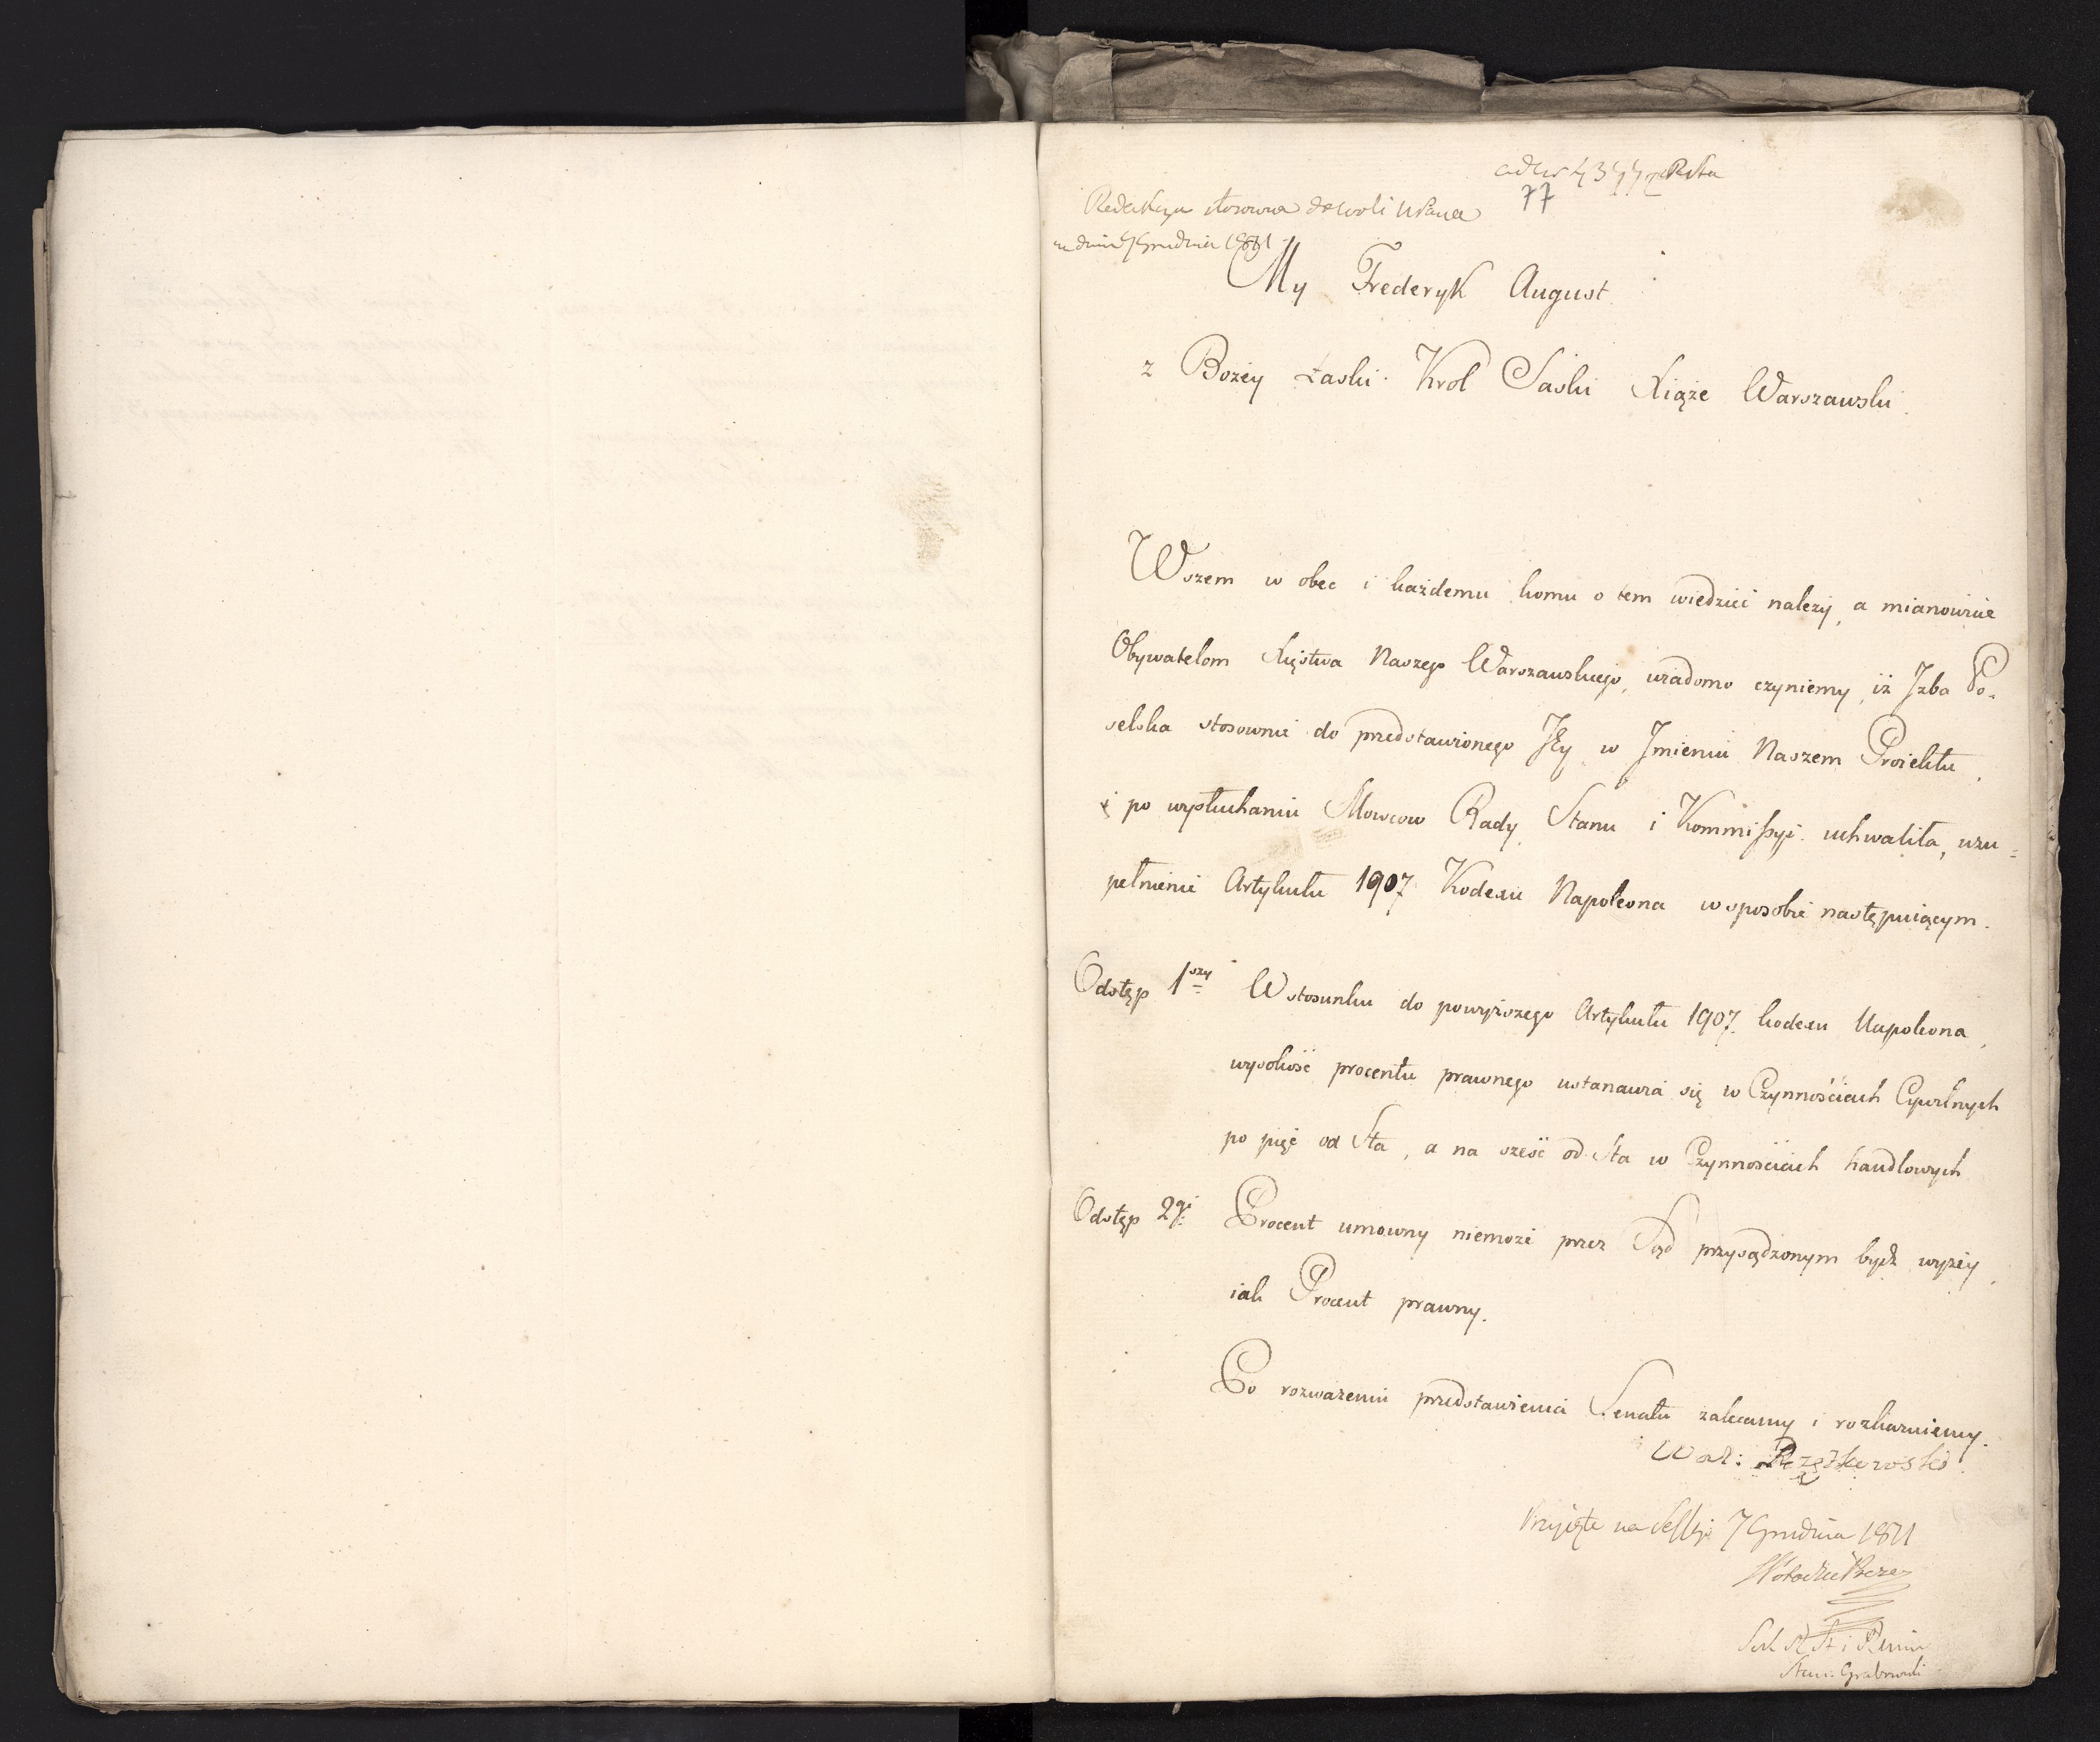 77
Redakcya stosowna do woli
dnia 7 Grudnia 1811
My Frederyk August
z Bożey Łaski Krol Saski Xiąże Warszawski.
Wszem w obec i każdemu komu o tem wiedzieć należy, a mianowicie
Obywatelom Xięstwa Naszego Warszawskiego, wiadomo czyniemy, iż Jzba Po-
selska stosownie do przedstawionego Jey w Jmieniu Naszem Proiektu,
i po wysłuchaniu Mowcow Rady Stanu i Kommissyi uchwaliła, uzu=
pełnienie Artykułu 1907 Kodexu Napoleona w sposobie następuiącym.
Odstęp 1szy W stosunku do powyższego Artykułu 1907. kodexu Napoleona,
wysokość procentu prawnego ustanawia się w Czynnościach Cywilnych
po pięć od Sta, a na sześć od Sta w Czynnościach handlowych
Odstęp 2gi Procent umowny niemoże przez Sąd przysądzonym bydź wyżey,
iak Procent prawny.
Po rozważeniu przedstawienia Senatu zalecamy i rozkazuiemy.
Przyięte na Sessyi 7 Grudnia 1811
Stan. Grabowski